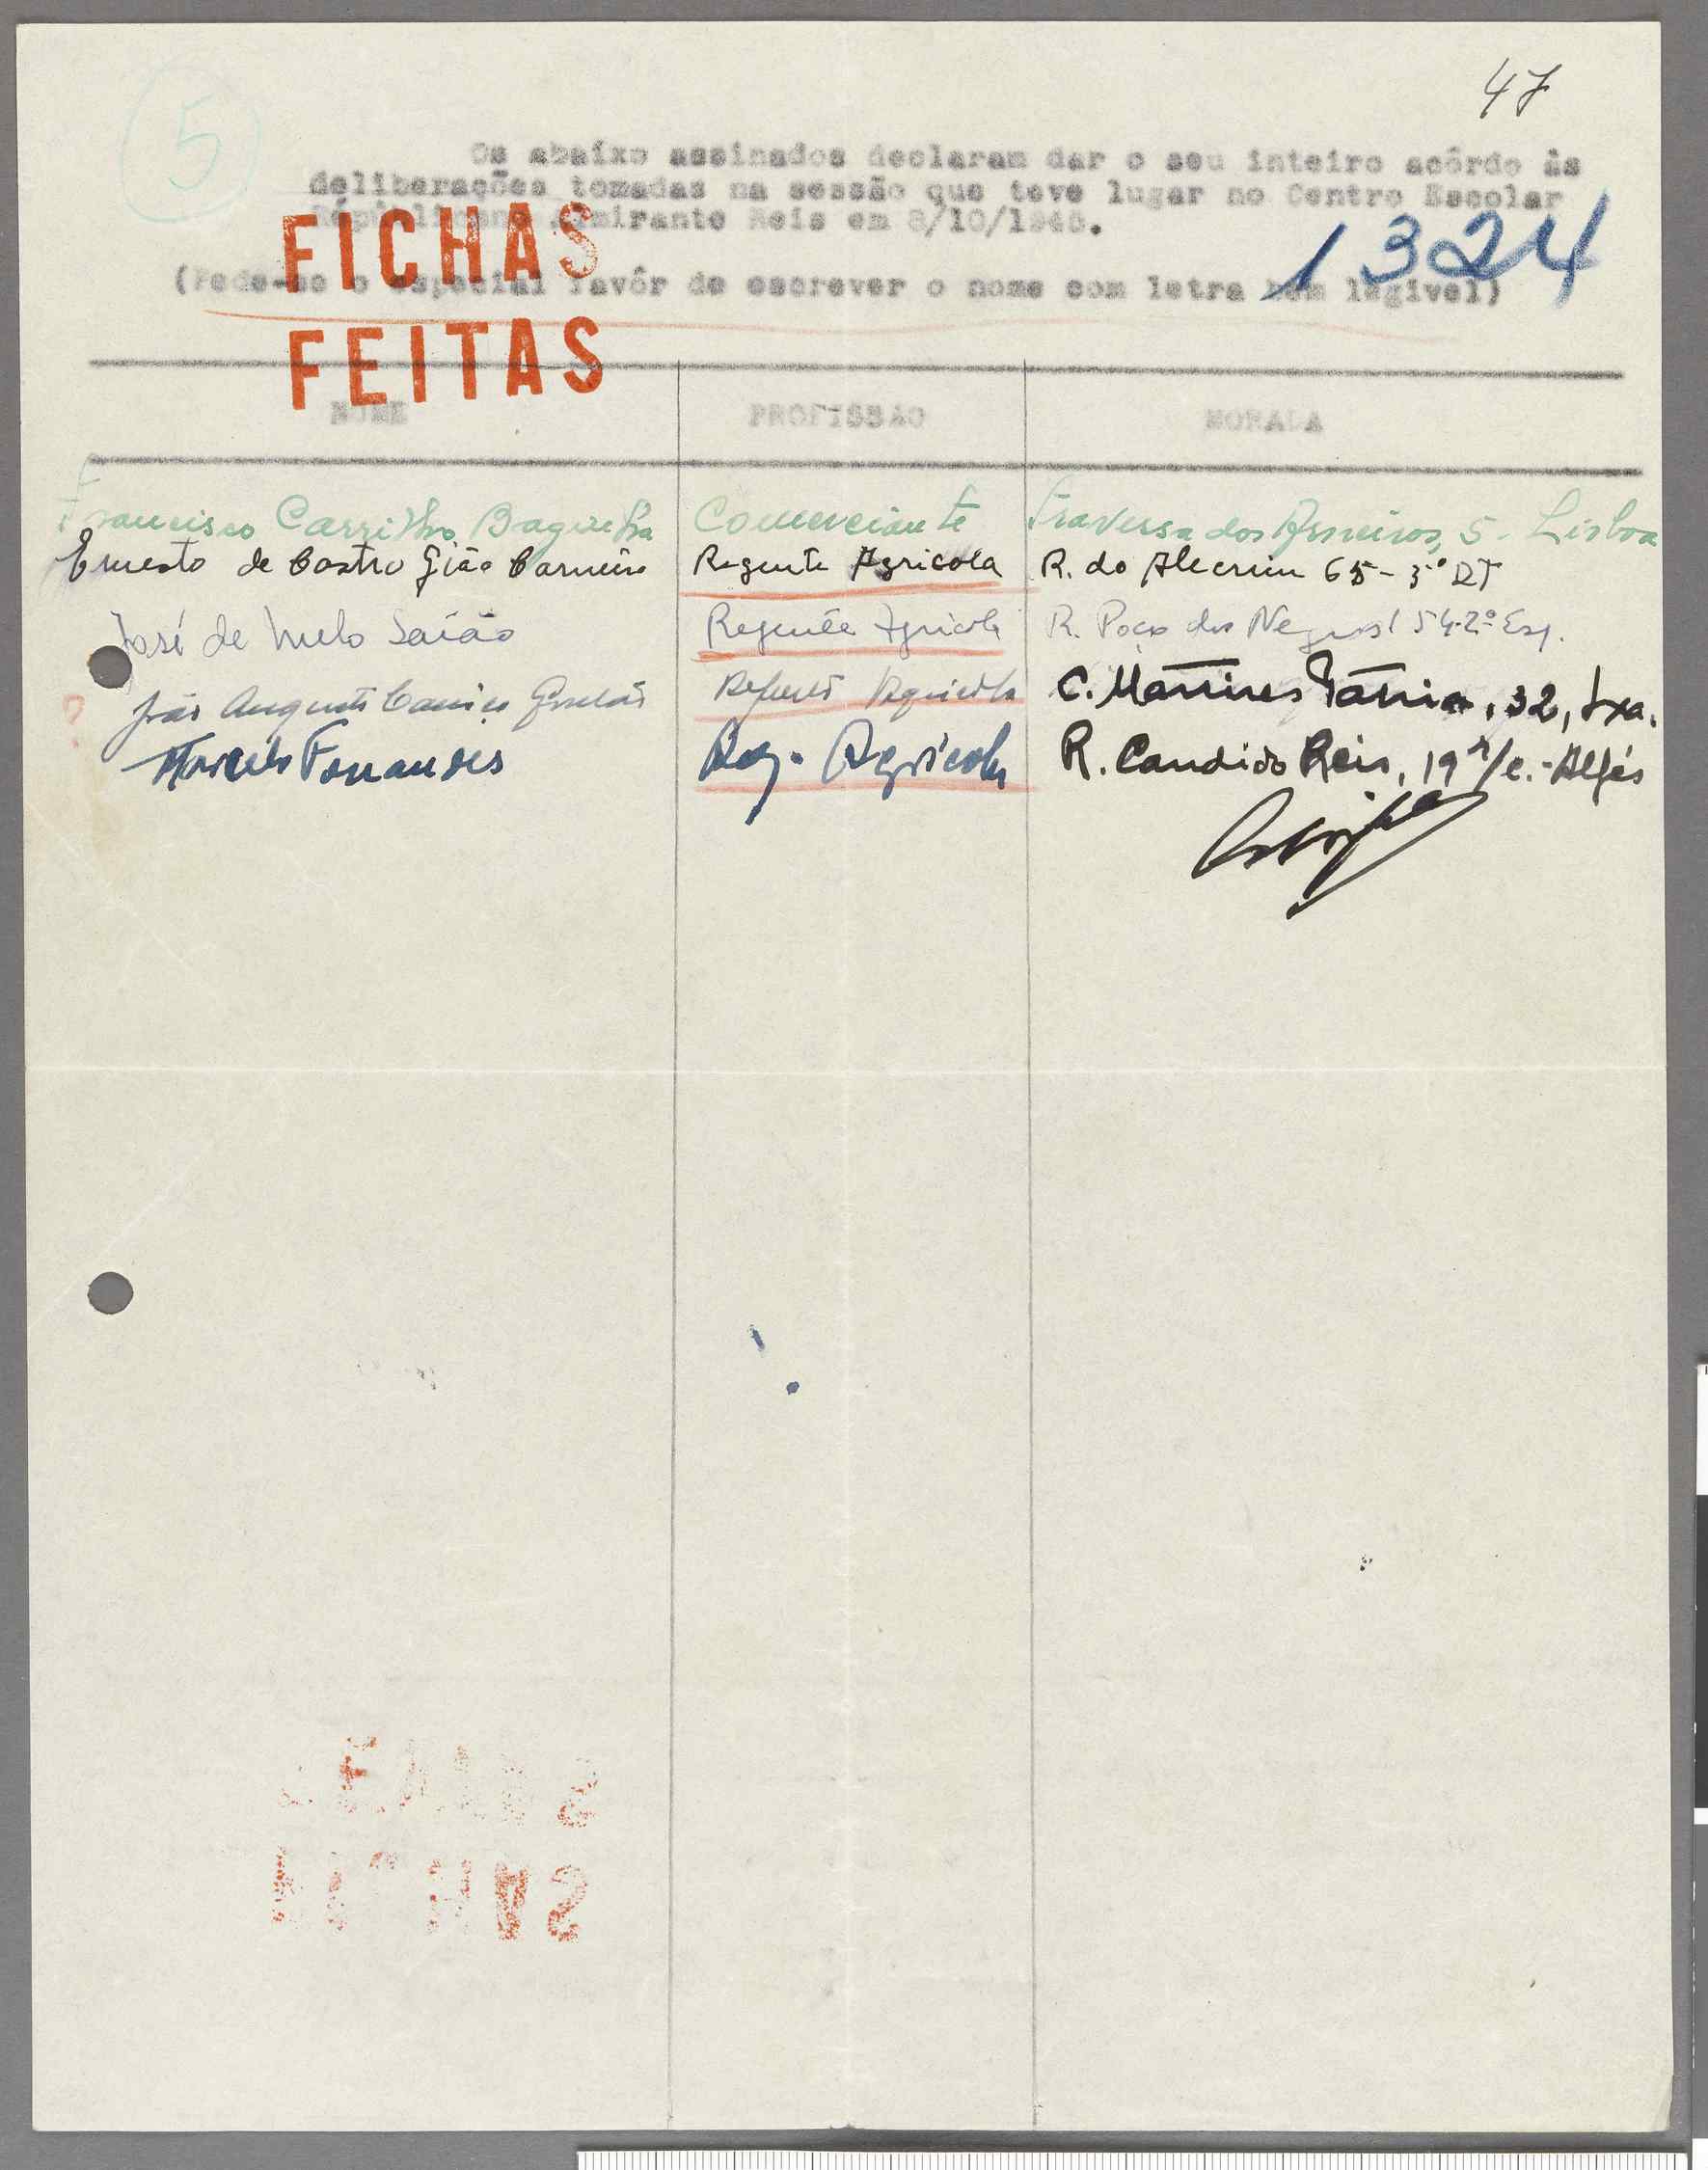 47
5
Os abaixo assinados declaram dar o seu inteiro acôrdo ás
deliberações tomadas na sessão que teve lugar no Centro Escolar
Républicano Almirante Reis em 8/10/1945.
1324
(Pede-se o especial favôr de escrever o nome com letra bem legivel)
FICHAS
FEITAS
NOME PROFISSAO MORADA
Francisco Carrilho Baguinha Comerciante Travessa dos Arneiros, 5 - Lisboa
Ernesto de Castro Gião Carneiro Regente Agricola R. do Alecrim 65 - 3º DT
José de Melo Saião Regente Agricola R. Poço dos Negros 154-2º Esq.
? João Augusto Regente Agricola C. Martires Pátria, 32, Lxa.
Marcelo Fernandes Reg. Agricola R. Candido Reis, 19 r/c. - Algés